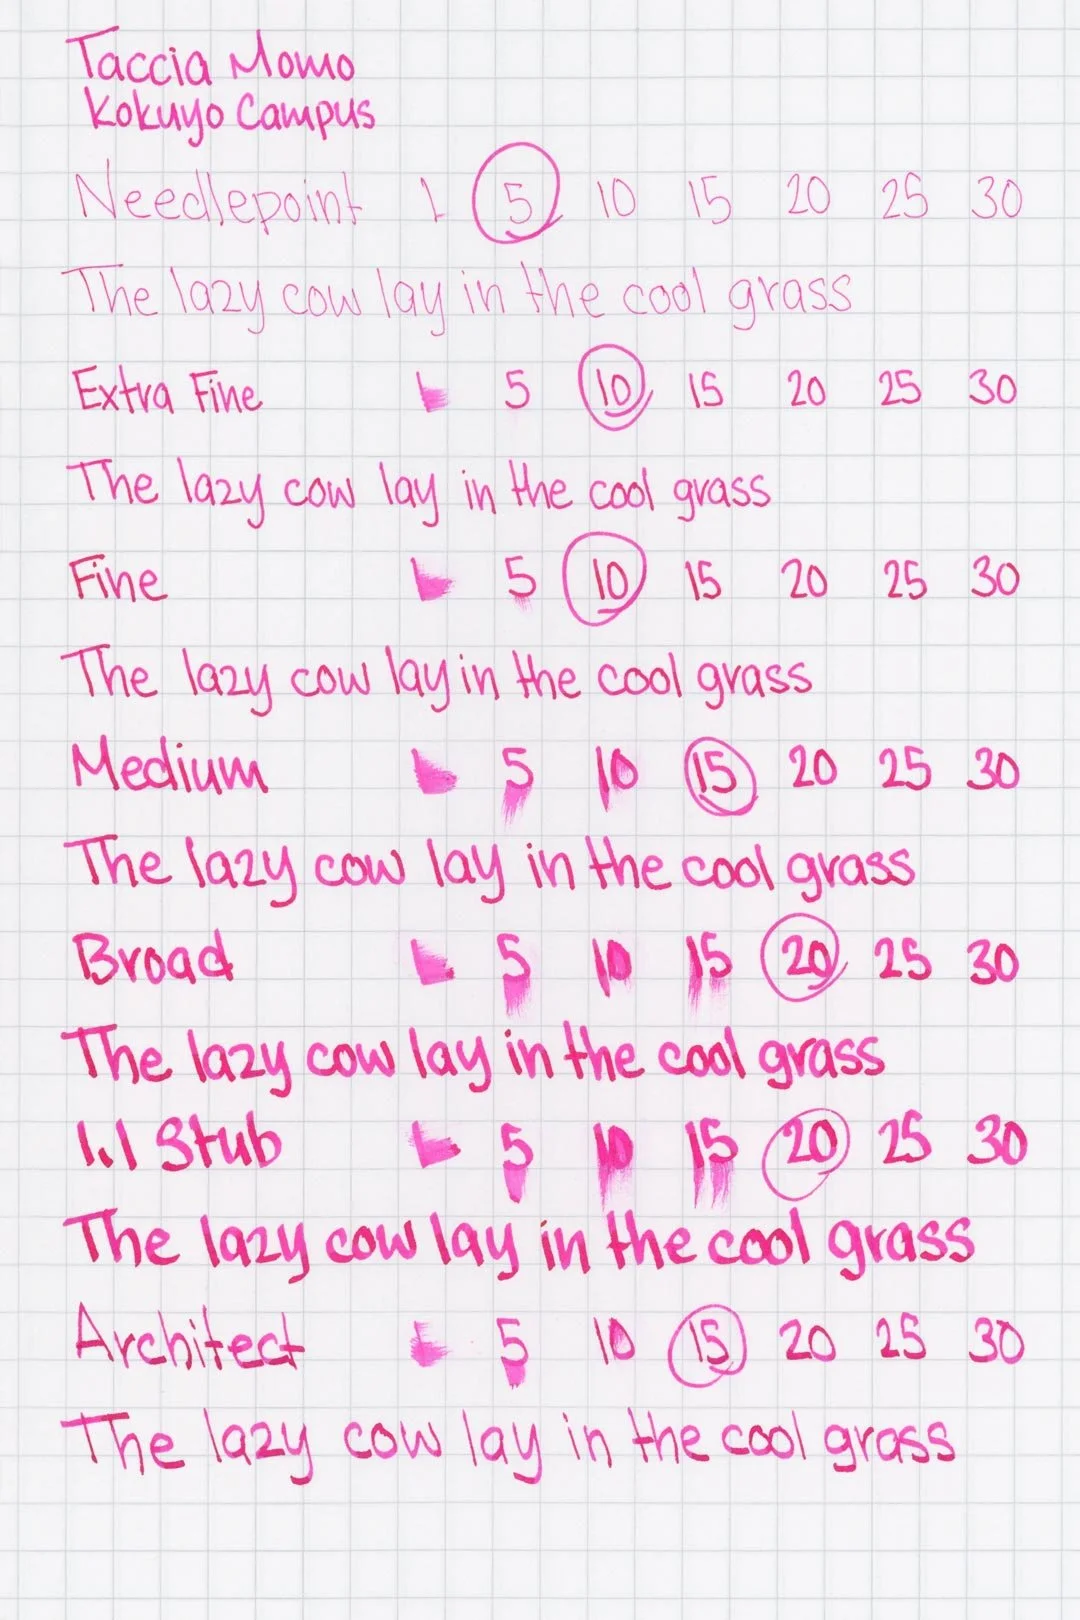 Taccia Momo
Kokuyo Campus
Needlepoint 1 5 10 15 20 25 30
The lazy cow lay in the cool grass
Extra Fine 1 5 10 15 20 25 30
The lazy cow lay in the cool grass
Fine 1 5 10 15 20 25 30
The lazy cow lay in the cool grass
Medium 1 5 10 15 20 25 30
The lazy cow lay in the cool grass
Broad 1 5 10 15 20 25 30
The lazy cow lay in the cool grass
1.1 Stub 1 5 10 15 20 25 30
The lazy cow lay in the cool grass
Architect 1 5 10 15 20 25 30
The lazy cow lay in the cool grass